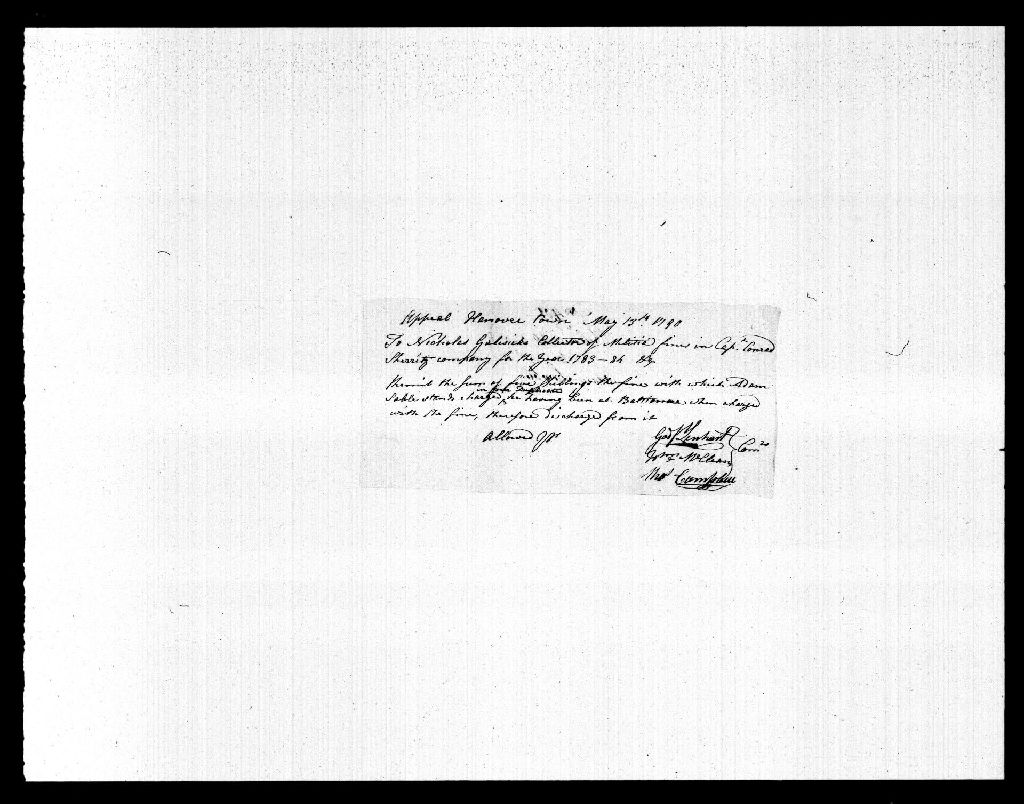 Appeal Hanover Town May 13th 1790
To Nicholas Gelisicks Collector of Militia fines in Capt. Conrad
Sherritz company for the Year 1783 — 84 &c
Permit the Sum of five Shillings the fine with which Adam
in your Duplicate
stands charged, he having been at Baltimore when charged
with the fine, therefore discharged from it
Allowed
Geo. Lenhart
McClean Comrs
Thos Campbell